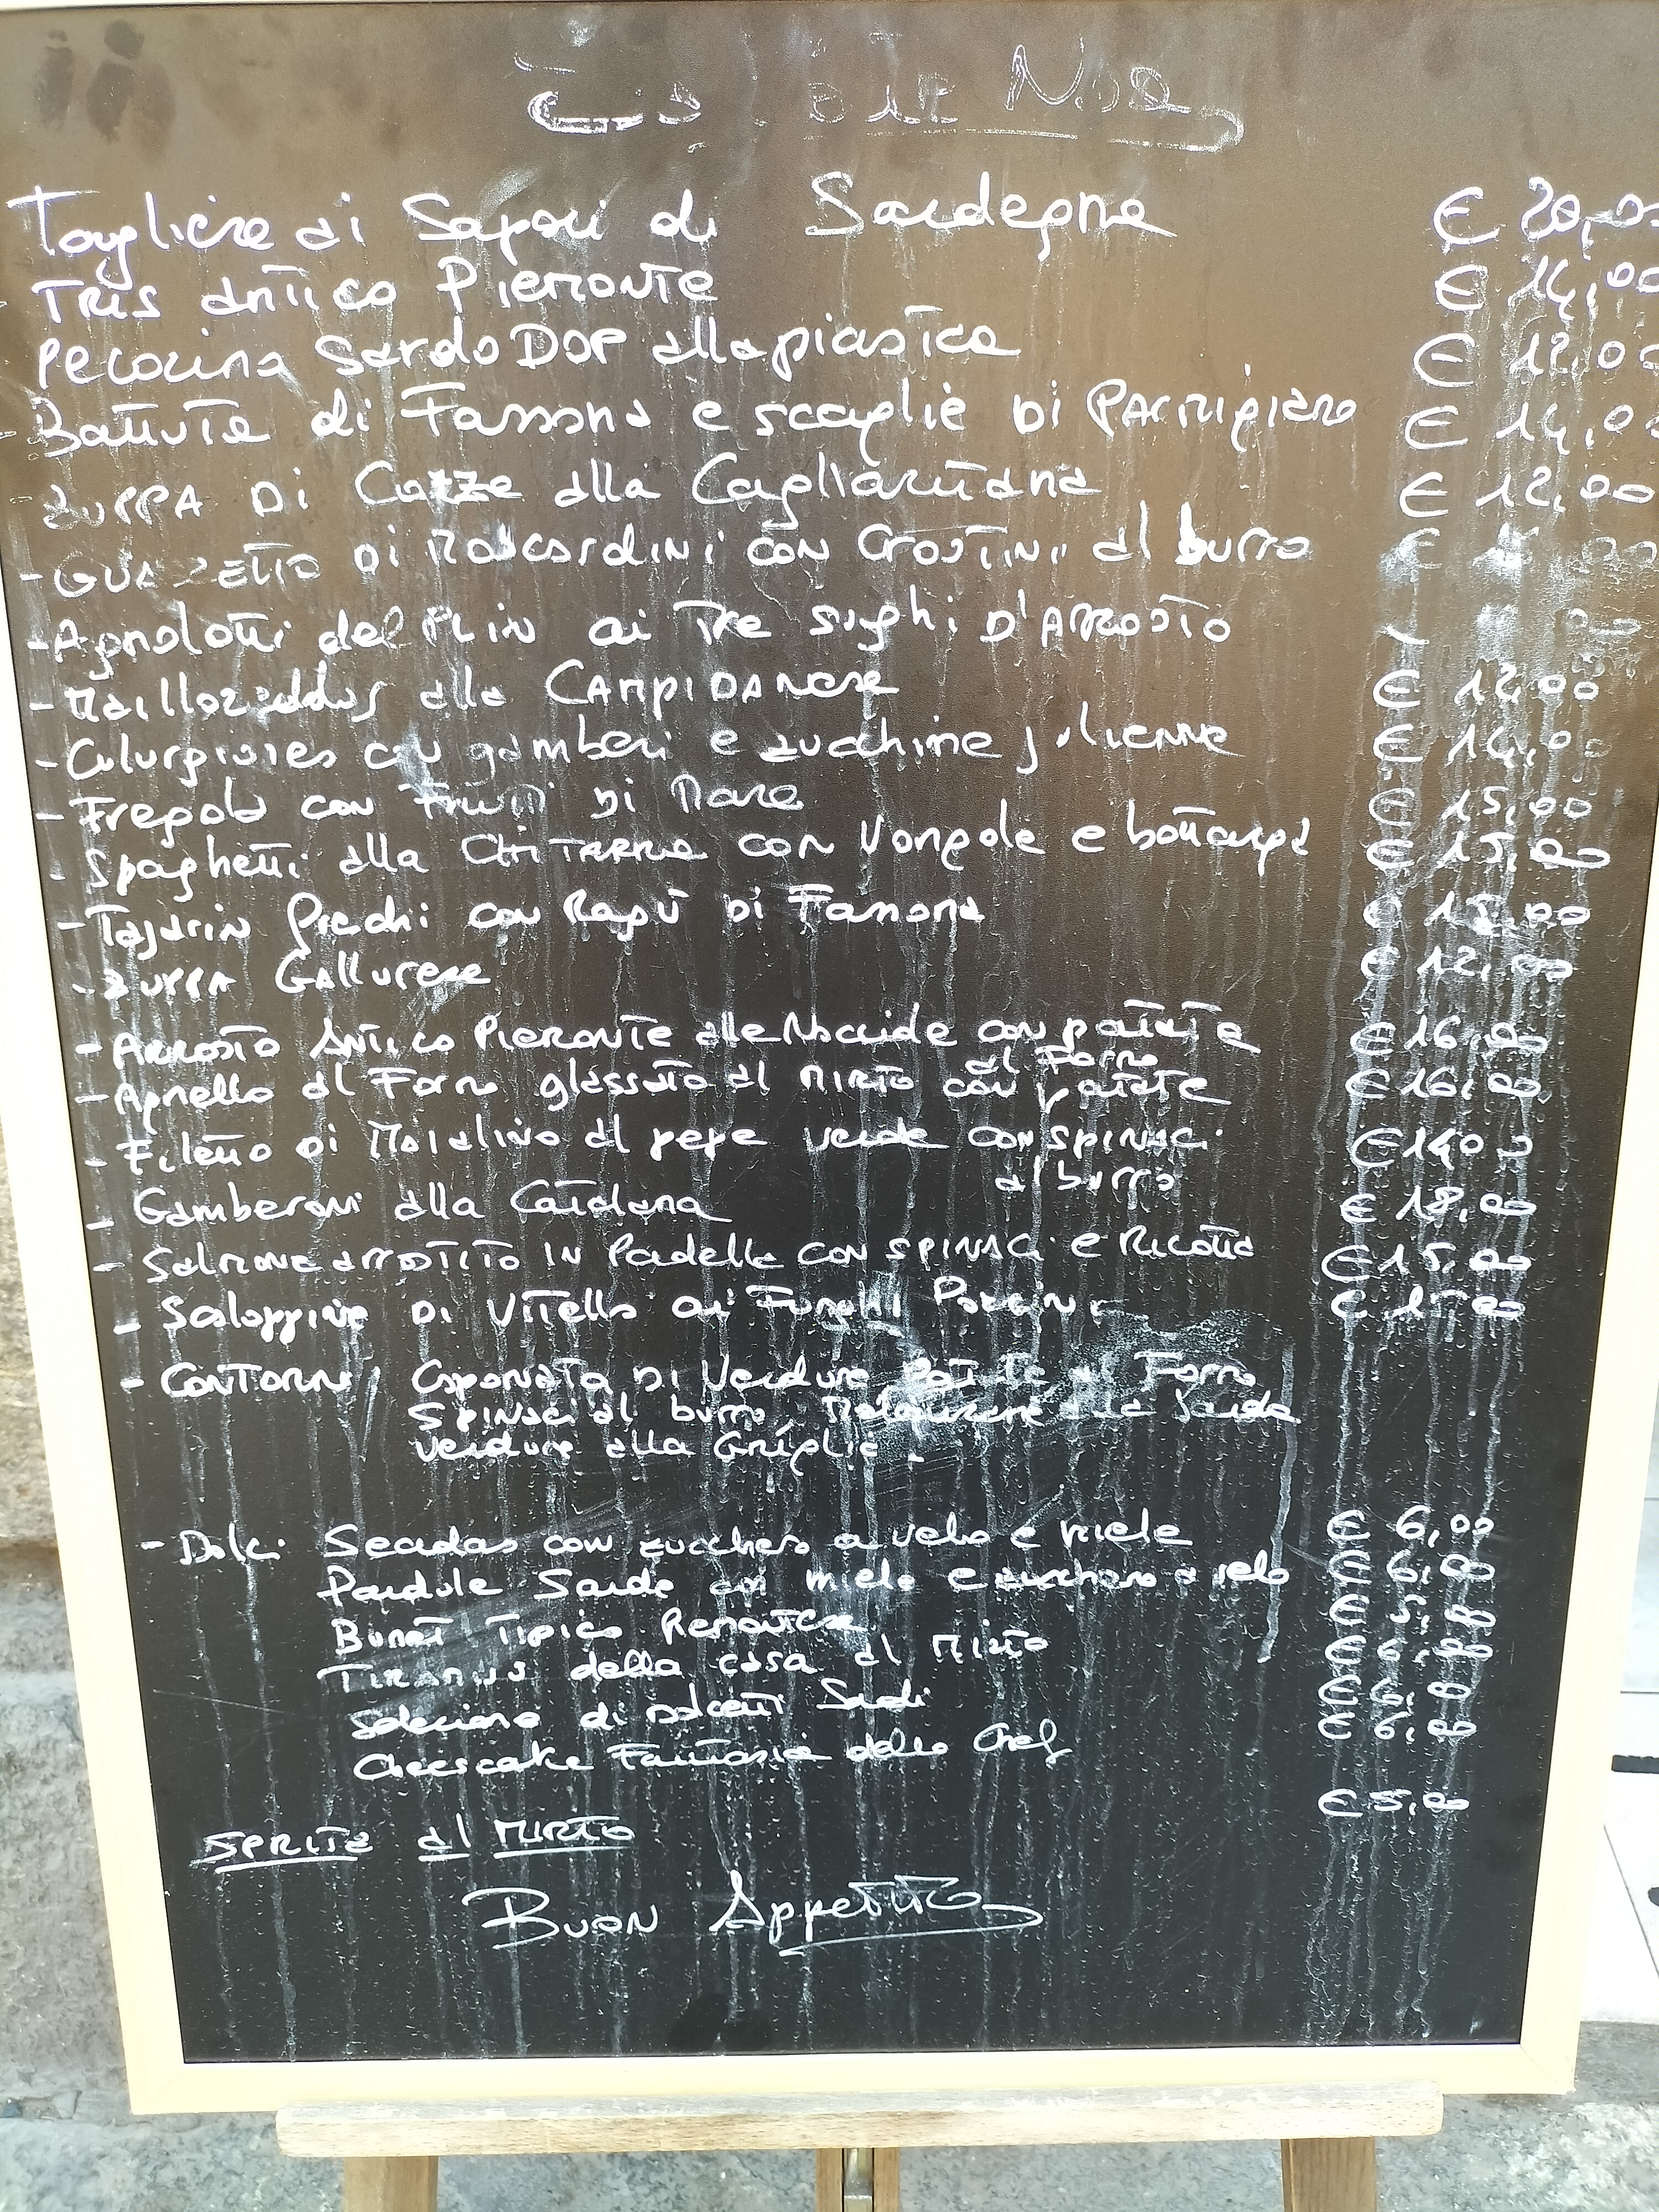 Tagliere ai Sapori di Sardegna € 20,00
- TRIS ANTICO PIEMONTE € 14,00
Pecorino Sardo DOP alla piastra € 12,00
- Battuta di Fassona e scaglie DI PARMIGIANO € 14,00
- ZUPPA DI Cozze alla Cagliaritana € 12,00
- GUAZZETTO DI MOSCARDINI CON CROSTINI al burro €
- Agnolotti del PLIN ai Tre sughi D'ARROSTO
- Malloreddus alla CAMPIDANESE € 12,00
- Culurgiones con gamberi e zucchine julienne € 14,00
- Fregola con Frutti DI Mare € 15,00
- Spaghetti alla CHITARRA CON Vongole e bottarga € 15,00
- Tajarin Freschi con Ragù DI Fassona
- ZUPPA GALLURESE € 12,00
- ARROSTO ANTICO PIEMONTE alle Nocciole con patate € 16,00
al Forno
- Agnello al Forno glassato al MIRTO con patate € 16,00
- Filetto DI Maialino al pepe verde CON SPINACI € 14,00
al burro
- Gamberoni alla Catalana € 18,00
- SALMONE ARROSTITO IN Padella CON SPINACI e Ricotta € 15,00
- Scaloppine DI VITELLO ai Funghi Porcini €
- CONTORNI Caponata DI Verdure Patate al Forno
SPINACI al burro, alla Sarda
verdure alla Griglia
- Dolci Seadas con zucchero a velo e miele € 6,00
Pardule Sarde con miele e zucchero a velo € 6,00
Bunet Tipico Piemontese € 5,00
TIRAMISU della casa al MIRTO € 6,00
selezione di dolcetti Sardi € 6,00
Cheescake Fantasia dello Chef € 6,00
€ 5,00
SPRITZ al MIRTO
BUON Appetito